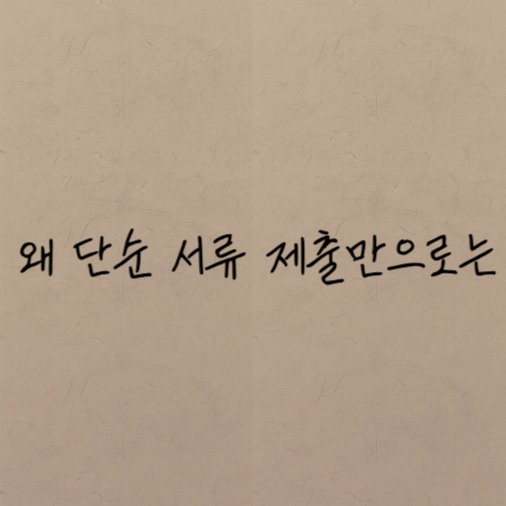 왜 단순 서류 제출만으로는